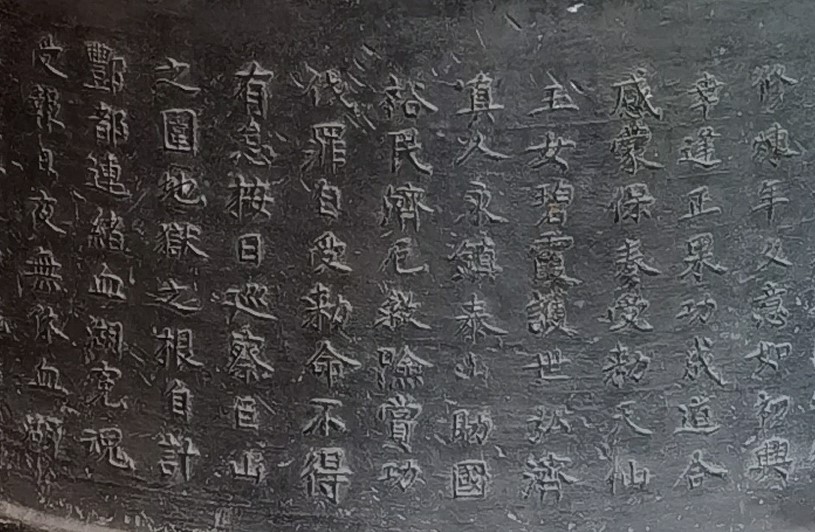 修煉年久意如初興
幸逢正果功成道合
感蒙保奏受勅天仙
玉女碧霞護世弘濟
真人永鎮泰山助國
裕民濟厄救險賞功
伐罪自受勅命不得
有怠按日巡察自山
之圍地獄之根自計
酆都連絡血湖冤魂
受報日夜無休血湖